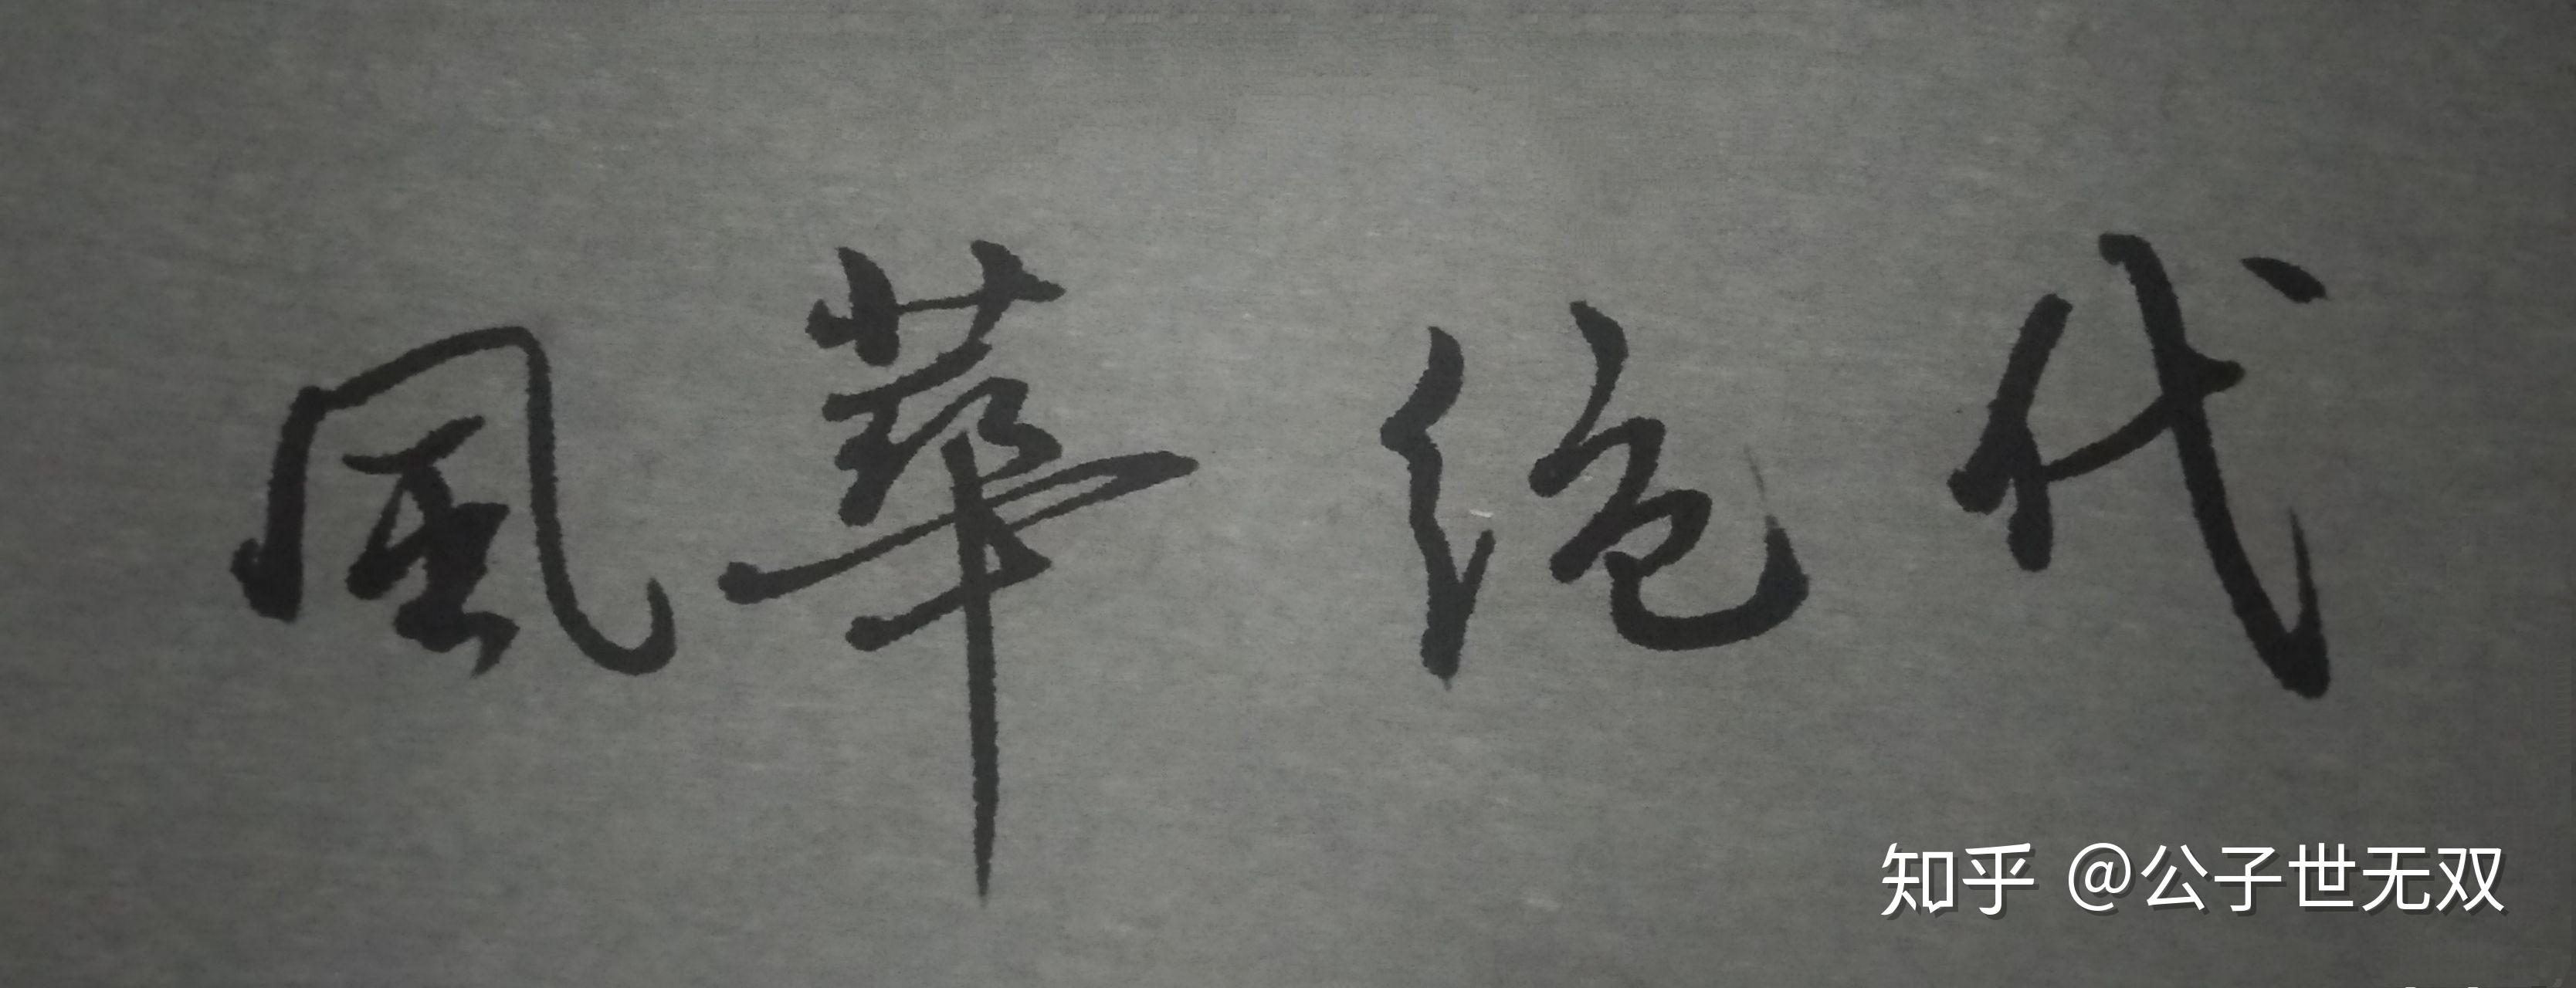 風華绝代
知乎 @公子世无双